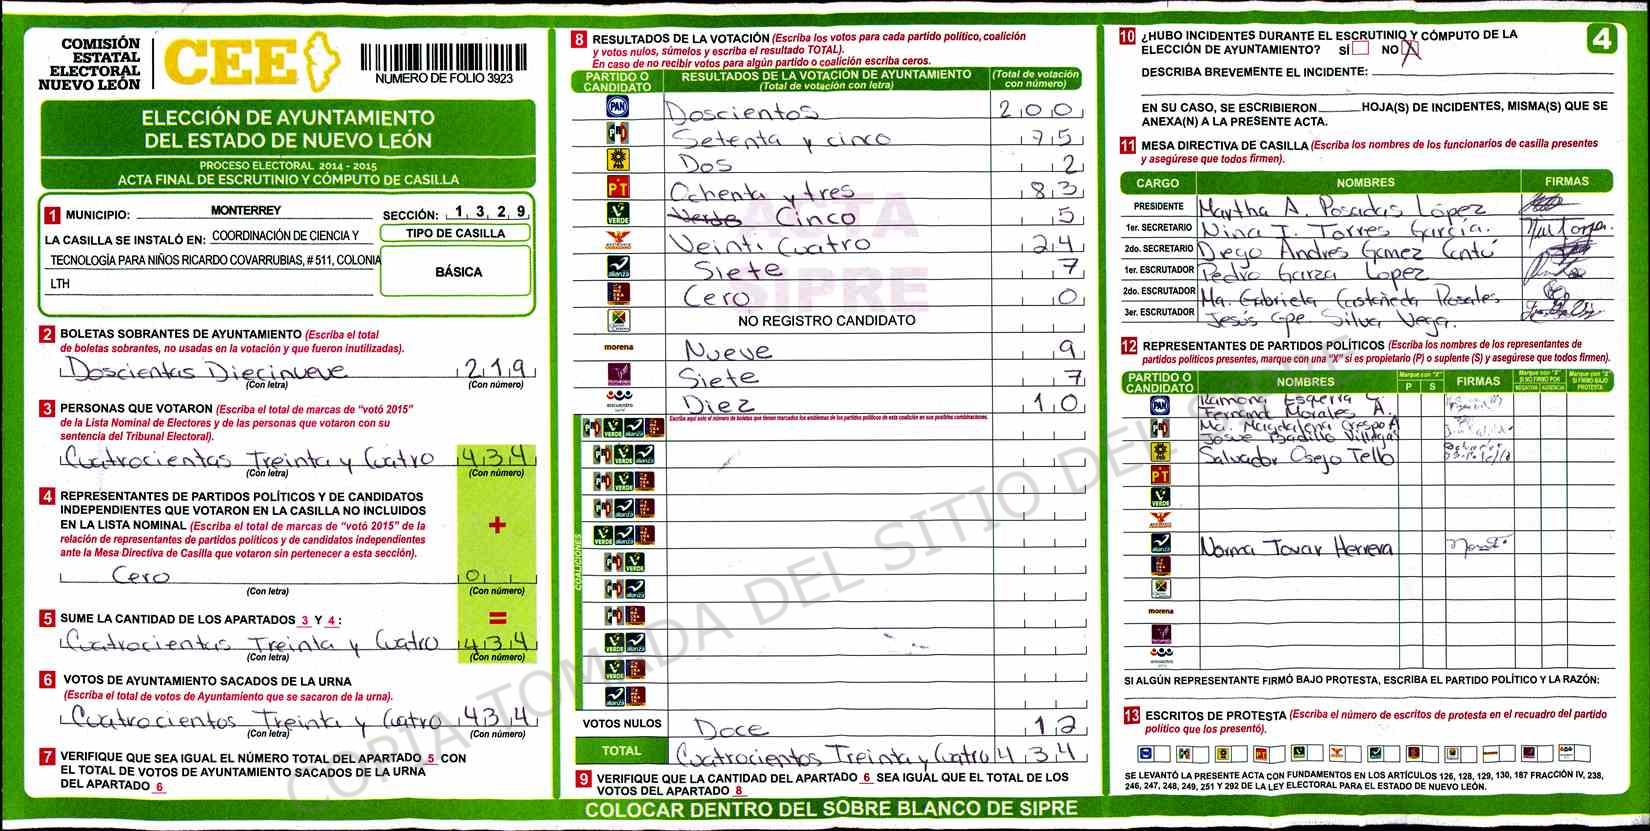 COMISIÓN
ESTATAL
ELECTORAL
NUEVO LEÓN
CEE
NUMERO DE FOLIO 3923
ELECCIÓN DE AYUNTAMIENTO
DEL ESTADO DE NUEVO LEÓN
PROCESO ELECTORAL 2014 - 2015
ACTA FINAL DE ESCRUTINIO Y CÓMPUTO DE CASILLA
1 MUNICIPIO: MONTERREY SECCIÓN: 1 3 2 9
LA CASILLA SE INSTALÓ EN: COORDINACIÓN DE CIENCIA Y
TECNOLOGÍA PARA NIÑOS RICARDO COVARRUBIAS, # 511, COLONIA
LTH
TIPO DE CASILLA
BÁSICA
2 BOLETAS SOBRANTES DE AYUNTAMIENTO (Escriba el total
de boletas sobrantes, no usadas en la votación y que fueron inutilizadas).
Doscientas Diecinueve 2 1 9
(Con letra) (Con número)
3 PERSONAS QUE VOTARON (Escriba el total de marcas de "votó 2015"
de la Lista Nominal de Electores y de las personas que votaron con su
sentencia del Tribunal Electoral).
Cuatrocientas Treinta y Cuatro 4 3 4
(Con letra) (Con número)
4 REPRESENTANTES DE PARTIDOS POLÍTICOS Y DE CANDIDATOS
INDEPENDIENTES QUE VOTARON EN LA CASILLA NO INCLUIDOS
EN LA LISTA NOMINAL (Escriba el total de marcas de "votó 2015" de la
relación de representantes de partidos políticos y de candidatos independientes
ante la Mesa Directiva de Casilla que votaron sin pertenecer a esta sección).
+
Cero 0
(Con letra) (Con número)
5 SUME LA CANTIDAD DE LOS APARTADOS 3 Y 4 :
=
Cuatrocientas Treinta y Cuatro 4 3 4
(Con letra) (Con número)
6 VOTOS DE AYUNTAMIENTO SACADOS DE LA URNA
(Escriba el total de votos de Ayuntamiento que se sacaron de la urna).
Cuatrocientos Treinta y Cuatro 4 3 4
(Con letra) (Con número)
7 VERIFIQUE QUE SEA IGUAL EL NÚMERO TOTAL DEL APARTADO 5 CON
EL TOTAL DE VOTOS DE AYUNTAMIENTO SACADOS DE LA URNA
DEL APARTADO 6
8 RESULTADOS DE LA VOTACIÓN (Escriba los votos para cada partido político, coalición
y votos nulos, súmelos y escriba el resultado TOTAL).
En caso de no recibir votos para algún partido o coalición escriba ceros.
PARTIDO O CANDIDATO RESULTADOS DE LA VOTACIÓN DE AYUNTAMIENTO (Total de votación con letra) (Total de votación con número)
PAN Doscientos 2 0 0
PRI Setenta y cinco 7 5
PRD Dos 2
PT Ochenta y tres 8 3
VERDE Verde Cinco 5
Veinti Cuatro 2 4
alianza Siete 7
Cero 0
NO REGISTRO CANDIDATO
morena Nueve 9
Siete 7
encuentro social Diez 1 0
ACTA
SIPRE
COALICIONES
Escriba aquí solo el número de boletas que tienen marcados los emblemas de los partidos políticos de esta coalición en sus posibles combinaciones.
VOTOS NULOS Doce 1 2
TOTAL Cuatrocientos Treinta y Cuatro 4 3 4
9 VERIFIQUE QUE LA CANTIDAD DEL APARTADO 6 SEA IGUAL QUE EL TOTAL DE LOS
VOTOS DEL APARTADO 8
COLOCAR DENTRO DEL SOBRE BLANCO DE SIPRE
COPIA TOMADA DEL SITIO DEL SIPRE
4
10 ¿HUBO INCIDENTES DURANTE EL ESCRUTINIO Y CÓMPUTO DE LA
ELECCIÓN DE AYUNTAMIENTO? SÍ NO X
DESCRIBA BREVEMENTE EL INCIDENTE:
EN SU CASO, SE ESCRIBIERON HOJA(S) DE INCIDENTES, MISMA(S) QUE SE
ANEXA(N) A LA PRESENTE ACTA.
11 MESA DIRECTIVA DE CASILLA (Escriba los nombres de los funcionarios de casilla presentes
y asegúrese que todos firmen).
CARGO NOMBRES FIRMAS
PRESIDENTE Martha A. Posadas López
1er. SECRETARIO Nina T. Torres García.
2do. SECRETARIO Diego Andres Gomez Cantú
1er. ESCRUTADOR Pedro Garza Lopez
2do. ESCRUTADOR Ma. Gabriela Castañeda Rosales
3er. ESCRUTADOR Jesús Gpe. Silva Vega.
12 REPRESENTANTES DE PARTIDOS POLÍTICOS (Escriba los nombres de los representantes de
partidos políticos presentes, marque con una "X" si es propietario (P) o suplente (S) y asegúrese que todos firmen).
PARTIDO O CANDIDATO NOMBRES Marque con "X" P S FIRMAS Marque con "X" SI NO FIRMÓ POR NEGATIVA AUSENCIA Marque con "X" SI FIRMÓ BAJO PROTESTA
PAN Ramona Esquerra G.
Fernand Morales A.
PRI Ma. Magdalena Crespo A
Josue Badillo Villegas
PRD Salvador Osejo Tello
PT
VERDE
alianza Norma Tovar Herrera
morena
encuentro social
SI ALGÚN REPRESENTANTE FIRMÓ BAJO PROTESTA, ESCRIBA EL PARTIDO POLÍTICO Y LA RAZÓN:
13 ESCRITOS DE PROTESTA (Escriba el número de escritos de protesta en el recuadro del partido
político que los presentó).
SE LEVANTÓ LA PRESENTE ACTA CON FUNDAMENTOS EN LOS ARTÍCULOS 126, 128, 129, 130, 187 FRACCIÓN IV, 238,
246, 247, 248, 249, 251 Y 292 DE LA LEY ELECTORAL PARA EL ESTADO DE NUEVO LEÓN.